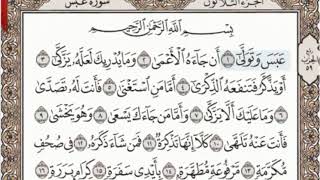 سورة عبس
الجزء الثلاثون
بِسْمِ اللَّهِ الرَّحْمَٰنِ الرَّحِيمِ
عَبَسَ وَتَوَلَّىٰ ١ أَن جَاءَهُ الْأَعْمَىٰ ٢ وَمَا يُدْرِيكَ لَعَلَّهُ يَزَّكَّىٰ ٣
أَوْ يَذَّكَّرُ فَتَنفَعَهُ الذِّكْرَىٰ ٤ أَمَّا مَنِ اسْتَغْنَىٰ ٥ فَأَنتَ لَهُ تَصَدَّىٰ
٦ وَمَا عَلَيْكَ أَلَّا يَزَّكَّىٰ ٧ وَأَمَّا مَن جَاءَكَ يَسْعَىٰ ٨ وَهُوَ يَخْشَىٰ ٩
فَأَنتَ عَنْهُ تَلَهَّىٰ ١٠ كَلَّا إِنَّهَا تَذْكِرَةٌ ١١ فَمَن شَاءَ ذَكَرَهُ ١٢ فِي صُحُفٍ
مُّكَرَّمَةٍ ١٣ مَّرْفُوعَةٍ مُّطَهَّرَةٍ ١٤ بِأَيْدِي سَفَرَةٍ ١٥ كِرَامٍ بَرَرَةٍ ١٦